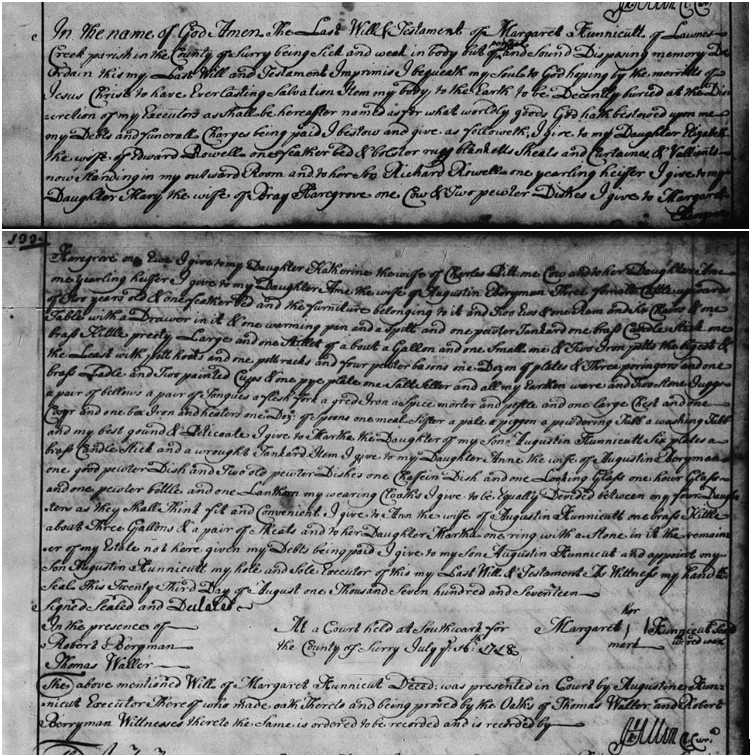 In the name of God Amen The Last Will & Testament of Margaret Hunnicutt of Lawnes
Creek parish in the County of Surry being Sick and weak in body but of perfect and Sound Disposing memory Do
Ordain this my Last Will and Testament Imprimis I bequeath my Soul to God hoping by the merritts of
Jesus Christ to have Everlasting Salvation Item my body to the Earth to be Decently buried at the Dis
cretion of my Executors as shall be hereafter named as for what worldly goods God hath bestowed upon me
my Debts and funerall Charges being paid I bestow and give as followeth, I give to my Daughter Elizabeth
the wife of Edward Rowell one feather bed & bolster rugg blanketts Sheats and Curtaines & Vallients
now standing in my outward Room and to her Son Richard Rowell one yearling heifer I give to my
Daughter Mary the wife of Bray Haregrove one Cow & Two pewter Dishes I give to Margaret
Haregrove
Haregrove one Ewe I give to my Daughter Katherine the wife of Charles one Cow and to her Daughter Ane
one yearling heifer I give to my Daughter Ane the wife of Augustin Berryman Three Cattle upwards
of years old & one featherbed and the furniture belonging to it and Two Ews & one Ram and six Chairs & one
Table with a Drawer in it & one warming pan and a Spitt and one pewter Tankard one brass Candle stick one
brass Kittle pretty Large and one Skillet of about a Gallon and one Small one & Two Iron potts the bigest &
the Least with pott hooks and one pottracks and four pewter basons one Dozen of plates & Three poringers and one
brass Ladle and Two painted Cups & one pye plate one Salt seller and all my Earthen ware and Two stone Juggs
a pair of bellows a pair of Tongues a flesh fork a gredt Iron a Spice morter and pestle and one large Chest and one
and one box Iron and heaters one Doz: of spoons one meal Sifter a pale a piggon a powdering Tubb a washing Tubb
and my best gound & Peticoate I give to Martha the Daughter of my Sone Augustin Hunnicutt Six plates a
brass Candle Stick and a wrought Tankard Item I give to my Daughter Anne the wife of Augustin Berryman
one good pewter Dish and Two old pewter Dishes one Chafein Dish and one Looking Glass one hour Glass
and one pewter bottle and one Lanthorn my wearing Cloaths I give to be Equally Devided between my four Daugh
ters as they shall think fit and Convenient I give to Ann the wife of Augustin Hunnicutt one brass Kittle
about Three Gallons & a pair of Sheats and to her Daughter Martha one ring with a Stone in it the remain
er of my Estate not here given my Debts being paid I give to my Son Augustin Hunnicutt and appoint my
Son Augustin Hunnicutt my hole and Sole Executor of this my Last Will & Testament As Wittness my hand &
Seale This Twenty Third Day of August one Thousand Seven hundred and Seventeen
Signed Sealed and
In the presence of
Robert Bergman
Thomas Waller
At a Court held at Southwark for
the County of Surry July ye. 16th. 1718
her
Margaret Hunnicutt
mark
The above mentioned Will of Margaret Hunnicutt Deced: was presented in Court by Augustine Hun-
nicutt Executor There of who made oath thereto and being proved by the Oaths of Thomas Waller and Robert
Berryman Wittnesses thereto the Same is ordered to be recorded and is recorded by